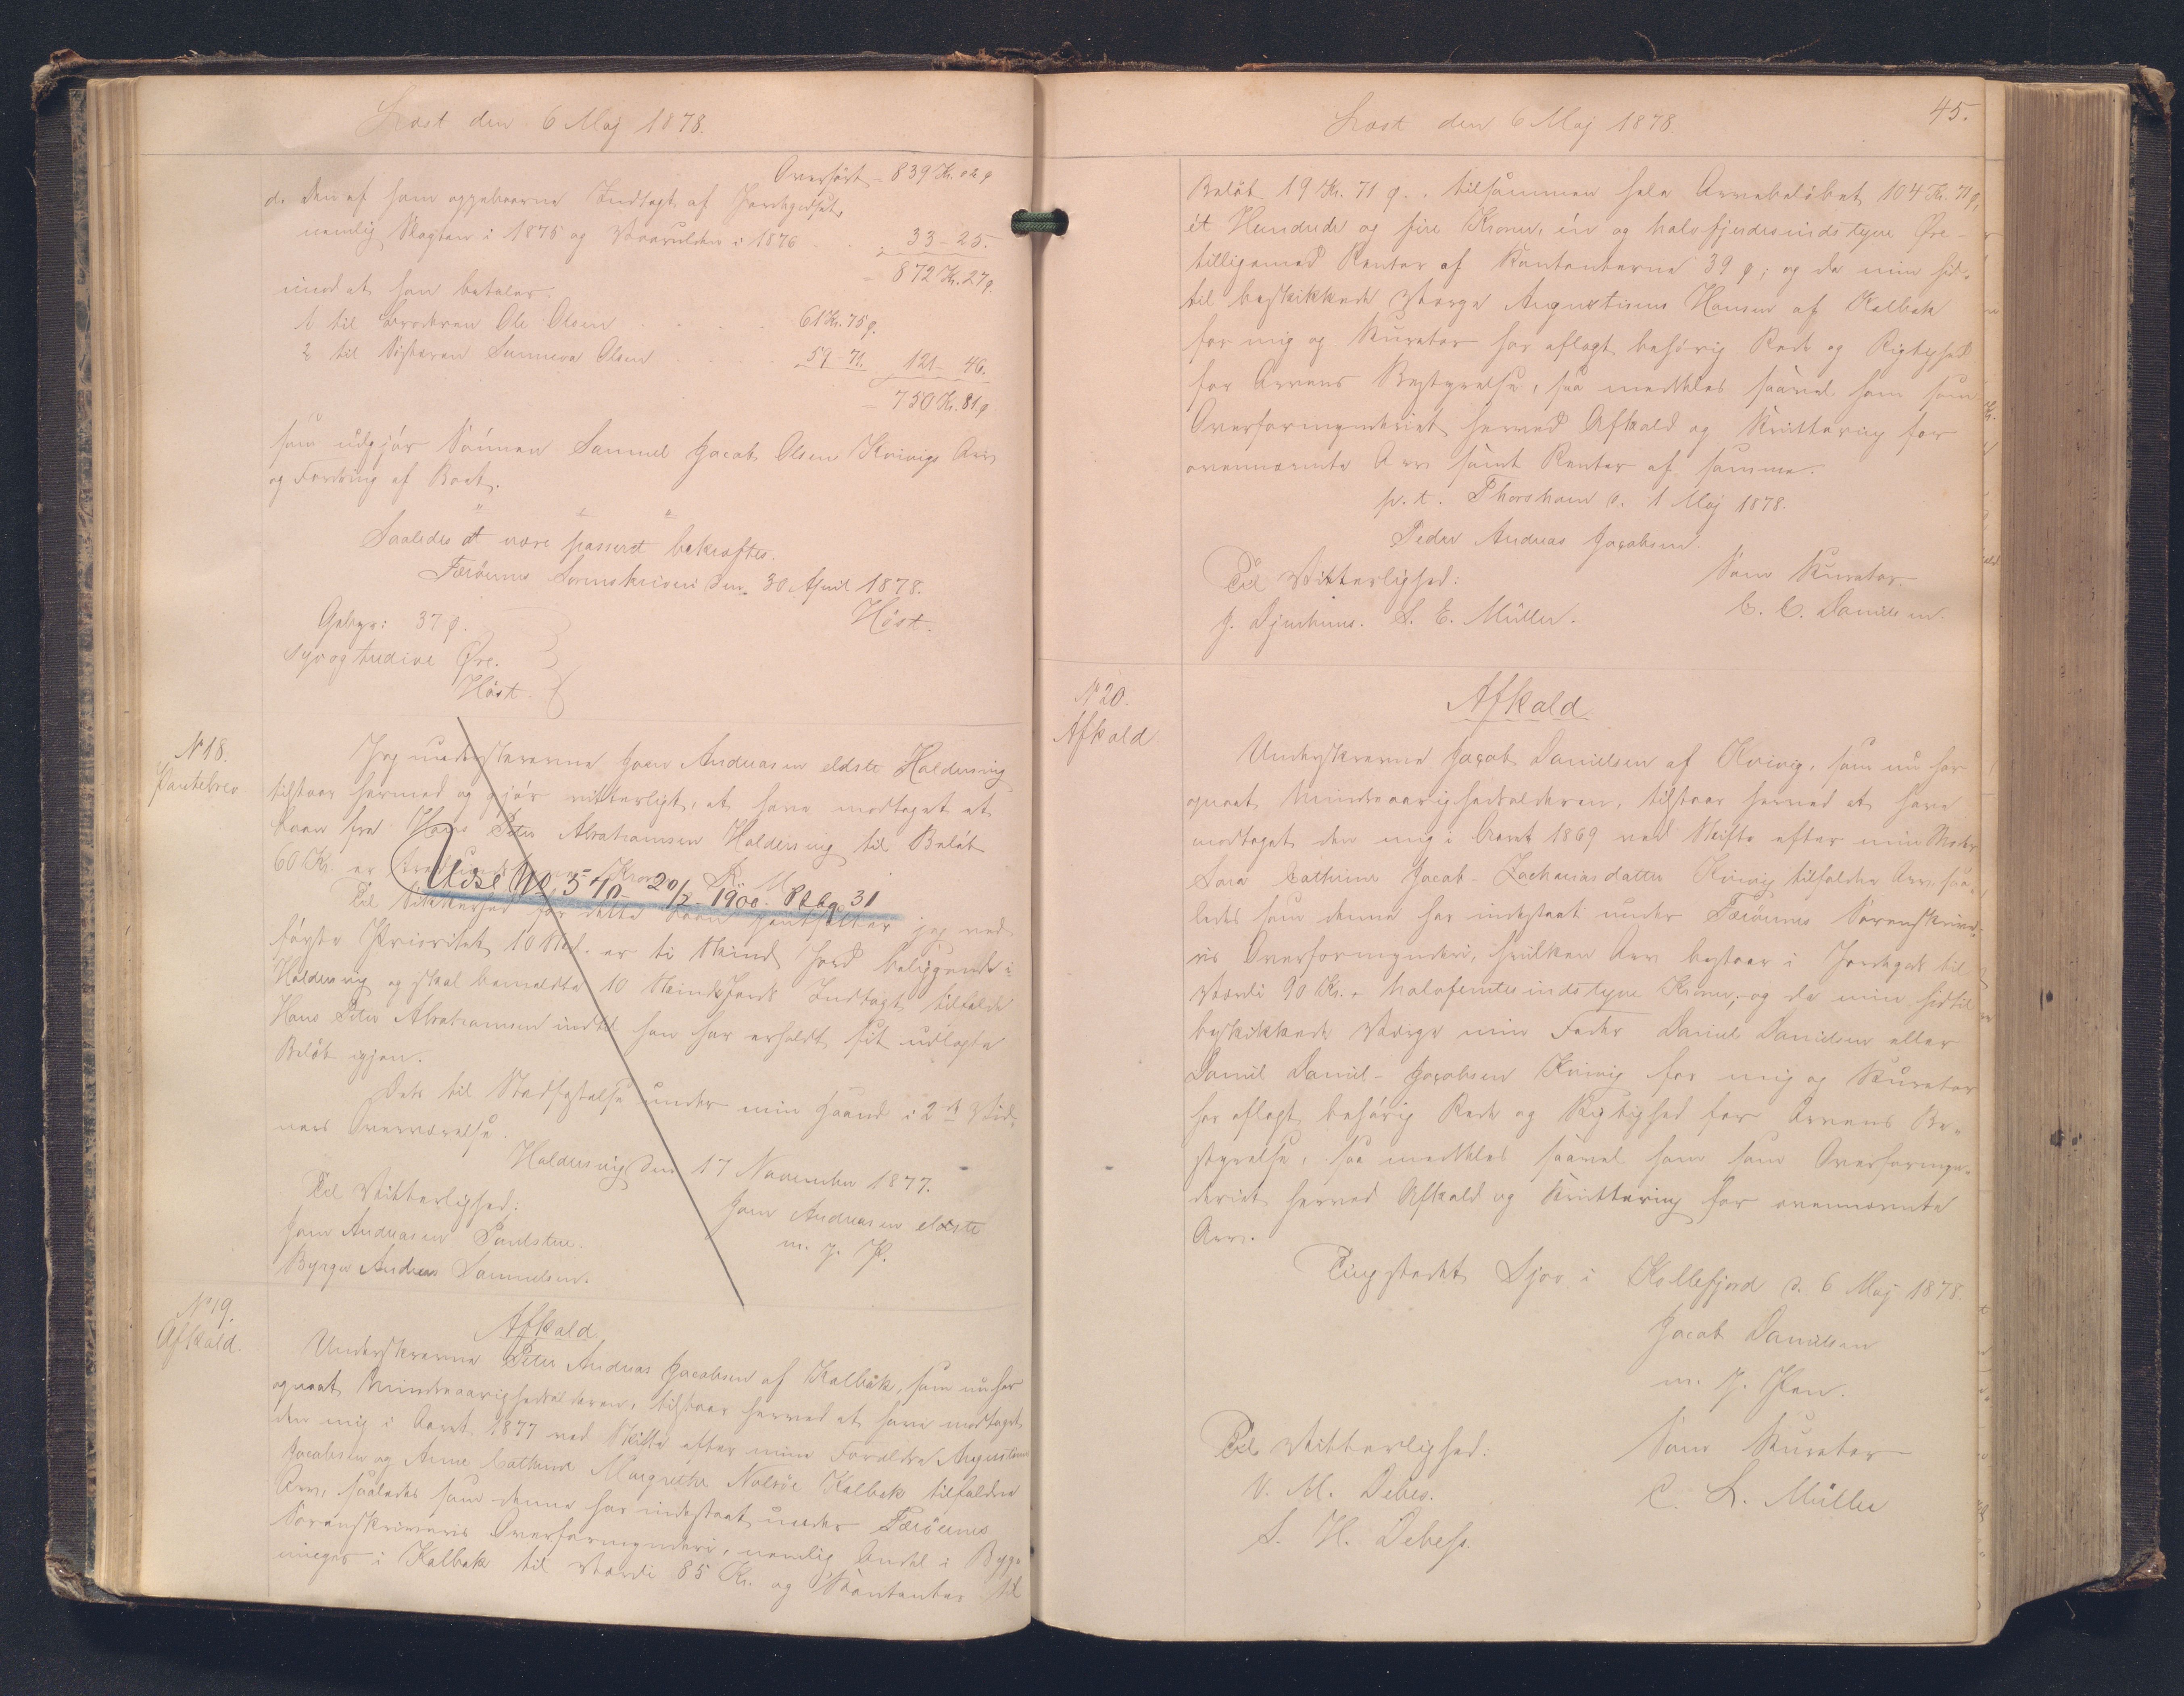 Læst den 6 Maj 1878.
Overført - 839 Kr. 02 ø
d. den af ham oppebaarne Indtægt af Jordegodset,
nemlig Slagten i 1875 og Vaarulden i 1876 . . „ 33 - 25.
= 872 Kr. 27 ø.
imod at han betaler:
1 til Broderen Ole Olsen . . . . 61 Kr. 75 ø.
2 til Søsteren Sunneva Olsen . . 59 - 71. „ 121 - 46.
= 750 Kr. 81 ø.
som udgjør Sønnen Samuel Jacob Olsen Kvivigs Arv
og Fordring af Boet.
" " "
Saaledes at være passeret bekræftes.
Færöernes Sorenskriveri den 30 April 1878.
Höst.
Gebyr: 37 ø.
syv og tredive Øre.
Höst.
N 18.
Pantebrev
Jeg underskrevne Joen Andreasen eldste Haldersvig
tilstaar hermed og gjør vitterligt, at have modtaget et
Laan fra Hans Peter Abrahamsen Haldersvig til Beløb
60 Kr. er Kroner
Udsl No 540 20/7 1900. Pkbg 31
Til Sikkerhed for dette Laan pantsætter jeg med
første Prioritet 10 Skd. er ti Skind Jord beliggende i
Haldersvig og skal bemeldte 10 Skinds Jords Indtægt tilfalde
Hans Peter Abrahamsen indtil han har erholdt sit udlagte
Beløb igjen.
Dets til Stadfæstelse under min Haand i 2de Vid-
ners Overværelse.
Haldersvig den 17 November 1877.
Til Vitterlighed: Joen Andreasen eldste
Joen Andreasen m. f. P.
Byrge Andreas Samuelsen.
N 19.
Afkald.
Afkald
Underskrevne Peter Andreas Jacobsen af Kalbak, som nu har
opnaaet Mindreaarighedsalderen, tilstaar herved at have modtaget
den mig i Aaret 1877 ved Skifte efter mine Forældre Augustinus
Jacobsen og Anne Cathrine Margrethe Nolsöe Kalbak tilfaldne
Arv, saaledes som denne har indestaaet under Færöernes
Sorenskriveris Overformynderi, nemlig Andel i Byg-
ninger i Kalbak til Værdi 85 Kr. og Kontanter til
Læst den 6 Maj 1878.
45.
Beløb 19 Kr. 71 ø. . tilsammen hele Arvebeløbet 104 Kr. 71 ø,
ét Hundrede og fire Kroner, én og halvfjerdesindstyve Øre -
tilligemed Renter af Kontanterne 39 ø; og da min hid-
til beskikkede Værge Augustinus Hansen af Kalbak
for mig og Kurator har aflagt behørig Rede og Rigtighed
for Arvens Bestyrelse, saa meddeles saavel ham som
Overformynderiet herved Afkald og Kvittering for
ovennævnte Arv samt Renter af samme.
p. t. Thorshavn d. 1 Maj 1878.
Peder Andreas Jacobsen.
Til Vitterlighed: Som Kurator.
J. Djurhuus. S. E. Müller. C. C. Danielsen.
N 20.
Afkald
Afkald
Underskrevne Jacob Danielsen af Kvivig, som nu har
opnaaet Mindreaarighedsalderen, tilstaar herved at have
modtaget den mig i Aaret 1869 ved Skifte efter min Moder
Sara Cathrine Jacob-Zachariasdatter Kvivig tilfaldne Arv, saa-
ledes som denne har indestaaet under Færöernes Sorenskrive-
ris Overformynderi, hvilken Arv bestaar i Jordegods til
Værdi 90 Kr. - halvfemtesindstyve Kroner, - og da min hidtil
beskikkede Værge min Fader Daniel Danielsen eller
Daniel Daniel-Jacobsen Kvivig for mig og Kurator
har aflagt behørig Rede og Rigtighed for Arvens Be-
styrelse, saa meddeles saavel ham som Overformyn-
deriet herved Afkald og Kvittering for ovennævnte
Arv.
Tingstedet Sjov i Kollefjord d. 6 Maj 1878.
Jacob Danielsen
m. f. Pen.
Til Vitterlighed: Som Kurator
V. M. Debes. C. L. Müller
S. H. Debess.